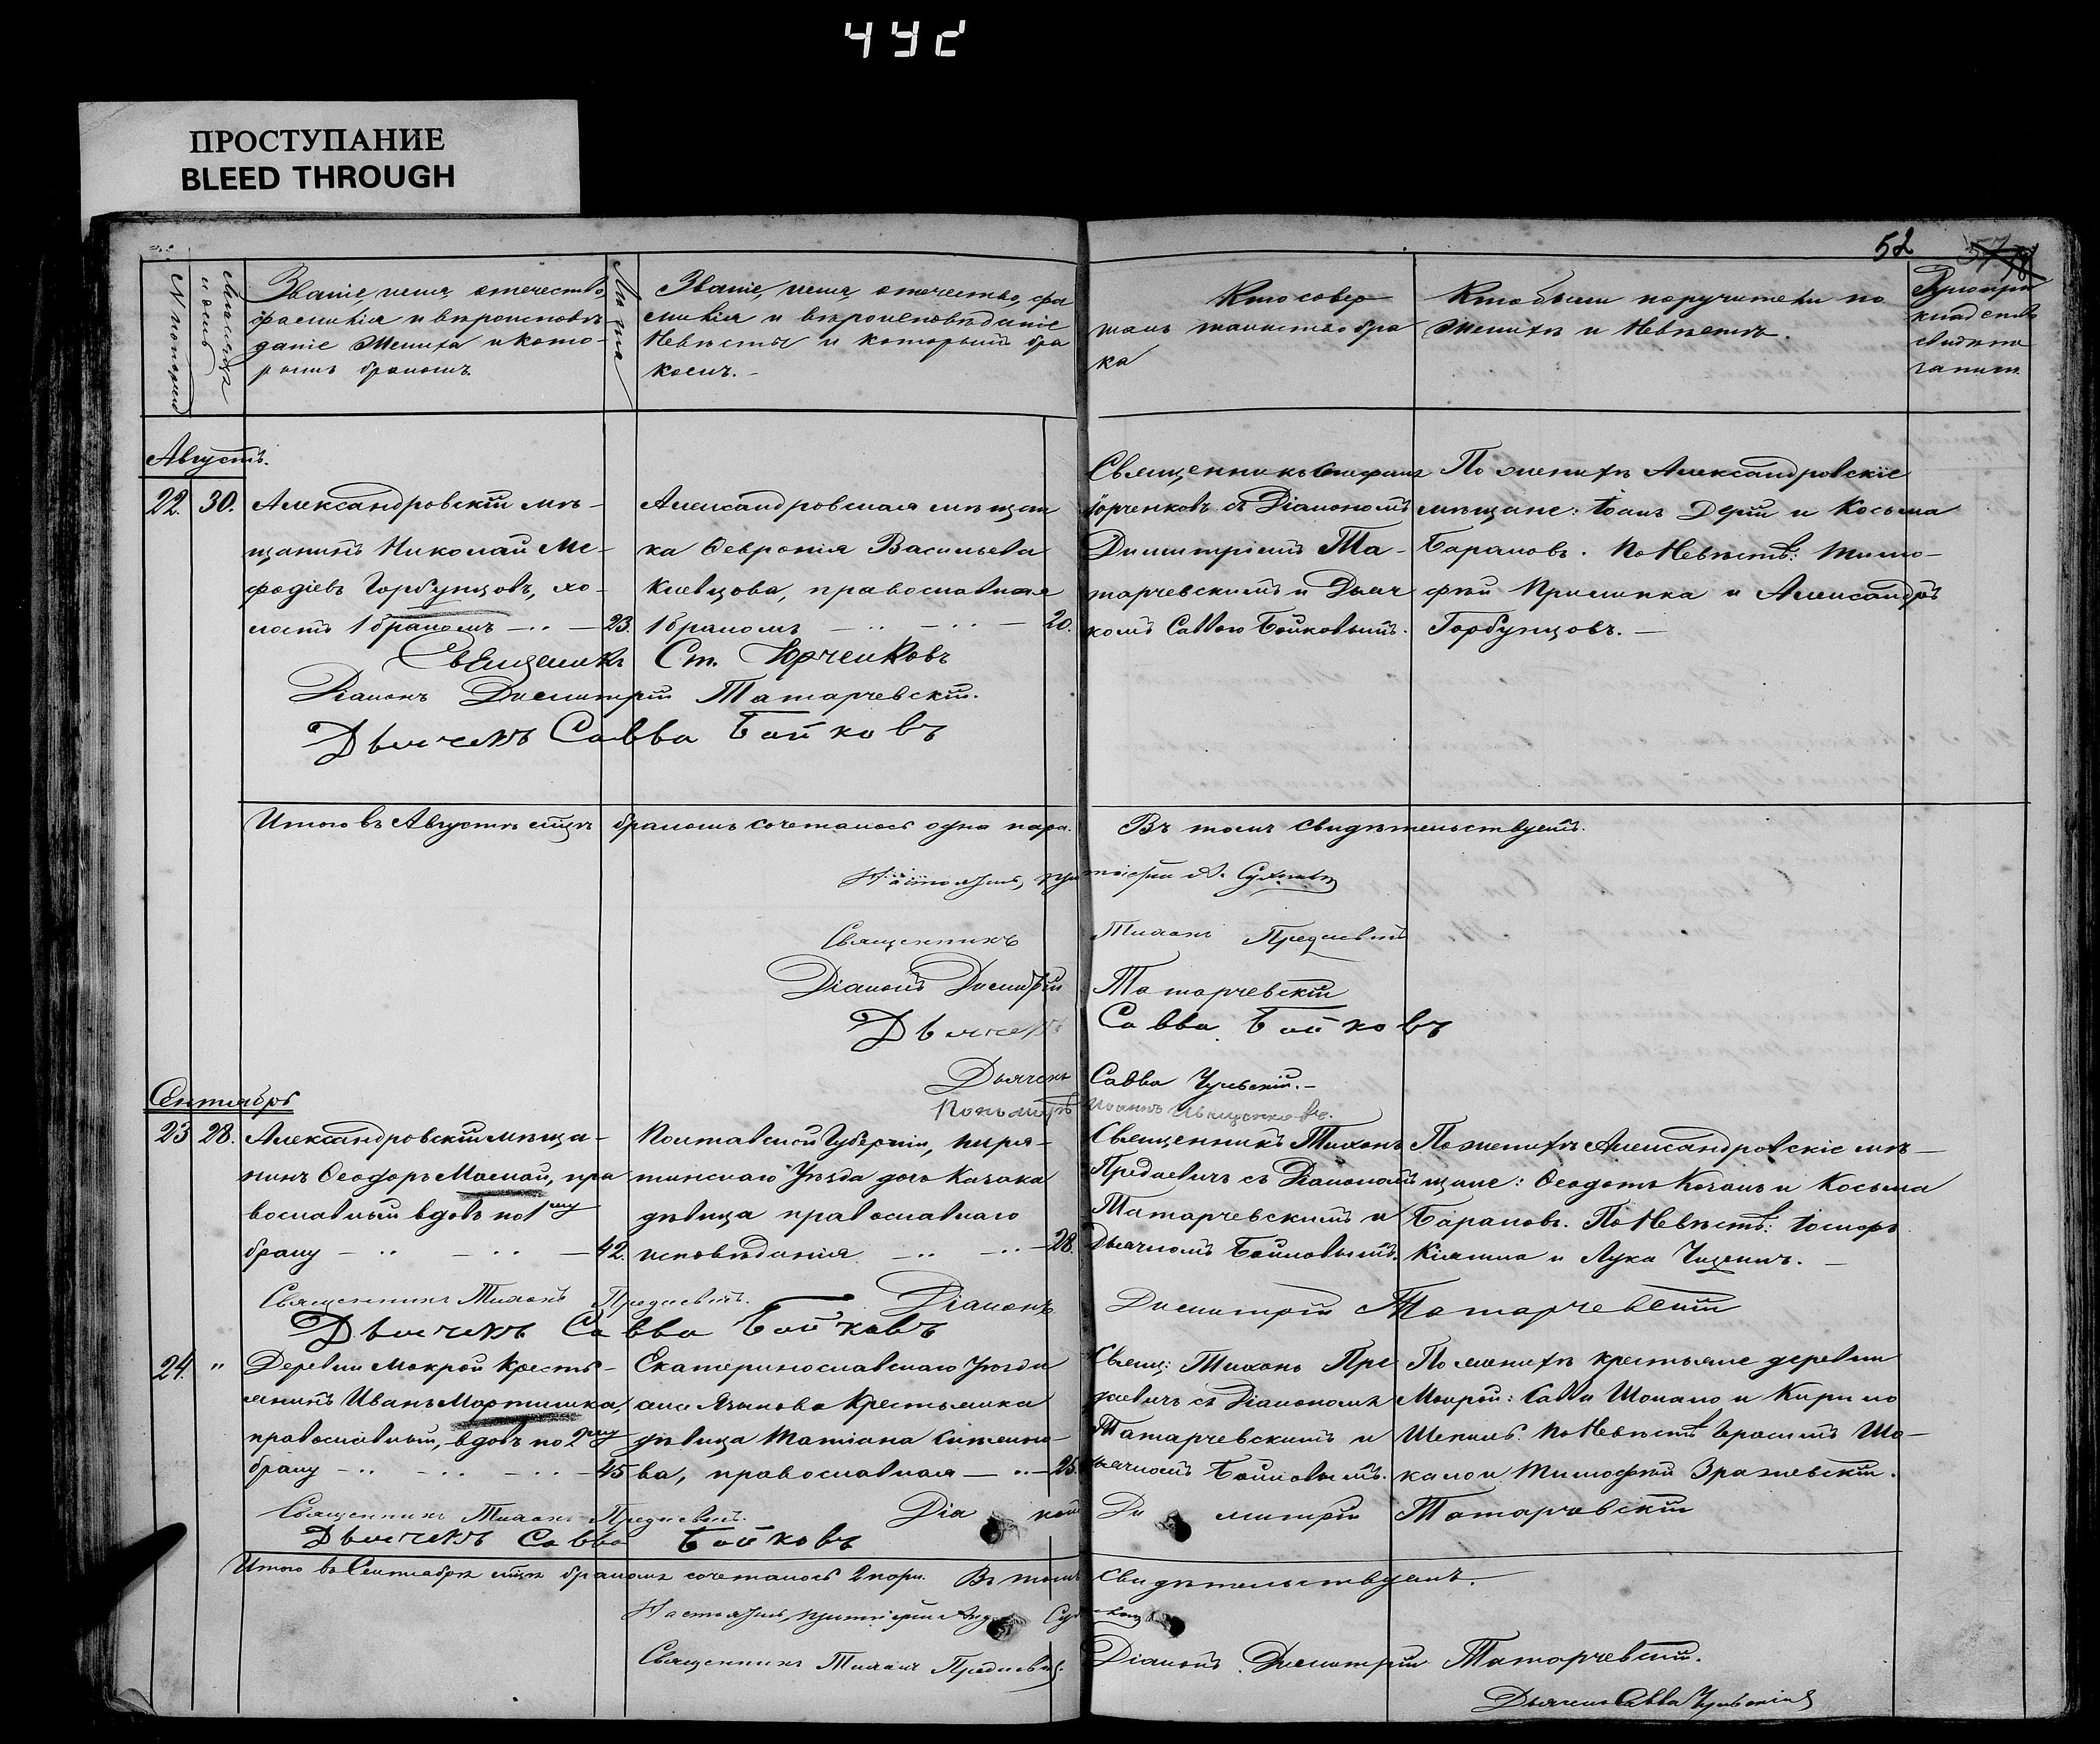 442
ПРОСТУПАНИЕ
BLEED THROUGH
52
Мѣсяцъ и день
Званіе, имя, отечество,
фамилія и вѣроисповѣ-
даніе Жениха и кото-
рымъ бракомъ.
Лѣта
Званіе, имя, отечество, фа
милія и вѣроисповѣданіе
Невѣсты и которымъ бра
комъ.-
Кто совер
шалъ таинство бра
ка
Кто были поручители по
Женихѣ и Невѣстѣ.
Рукопри
кладство
свидѣте
Августъ.
22. 30. Александровскій мѣ-
щанинъ Николай Ме-
фодіевъ Горбунцовъ, хо-
лостъ 1 бракомъ 23.
Александровская мѣщан
ка Ѳевронія Васильева
Киевцова, православная
1 бракомъ 20.
Священникъ Стефанъ
Юрченковъ съ Діакономъ
Димитріемъ Та-
тарчевскимъ и Дьяч
комъ Саввою Бойковымъ.
По женихѣ Александровскіе
мѣщане: Іоанъ Дерій и Косьма
Барановъ. По Невѣстѣ: Тимо-
фѣй и Александръ
Горбунцовъ.-
Священникъ Ст. Юрченковъ
Діаконъ Димитрій Татарчевскій.
Дьячекъ Савва Бойковъ
Итого въ Августѣ м҃цѣ бракомъ сочеталось одна пара. Въ томъ свидѣтельствуемъ.
Священникъ Тихонъ
Діаконъ Димитрій Татарчевскій
Дьячекъ Савва Бойковъ
Дьячекъ Савва
Пономарь Иоаннъ
Сентябрь
23 28. Александровскій мѣща-
нинъ Ѳеодоръ Мамай, пра
вославный вдовъ по 1му
браку 42.
Полтавской Губерніи, Пиря-
тинскаго Уѣзда дочь Казака
дѣвица православнаго
исповѣданія 28.
Священникъ Тихонъ
Предаевичъ съ Діакономъ
Татарчевскимъ и
Дьячкомъ Бойковымъ.
По женихѣ Александровскіе мѣ-
щане: Ѳеодотъ Коганъ и Косьма
Барановъ. По Невѣстѣ: Іосифъ
и Лука
Священникъ Тихонъ Діаконъ Димитрій Татарчевскій
Дьячекъ Савва Бойковъ
24. " Деревни Мокрой Кресть-
янинъ Иванъ Мартишка,
православный, вдовъ по 2му
браку 45
Екатеринославскаго Уѣзда
села Языкова Крестьянка
дѣвица Татіана
ва, православная 25.
Свящ: Тихонъ Пре
даевичъ съ Діакономъ
Татарчевскимъ и
Дьячкомъ Бойковымъ.
По женихѣ крестьяне деревни
Мокрой: Савва Шокало и Кирило
Шепиль. По Невѣстѣ Герасимъ Шо-
кало и Тимофѣй Зражевскій.
Священникъ Тихонъ Діаконъ Димитрій Татарчевскій
Дьячекъ Савва Бойковъ
Итого въ Сентябрѣ м҃цѣ бракомъ сочеталось 2 пары. Въ томъ свидѣтельствуемъ.
Священникъ Тихонъ Діаконъ Димитрій Татарчевскій.
Дьячекъ Савва